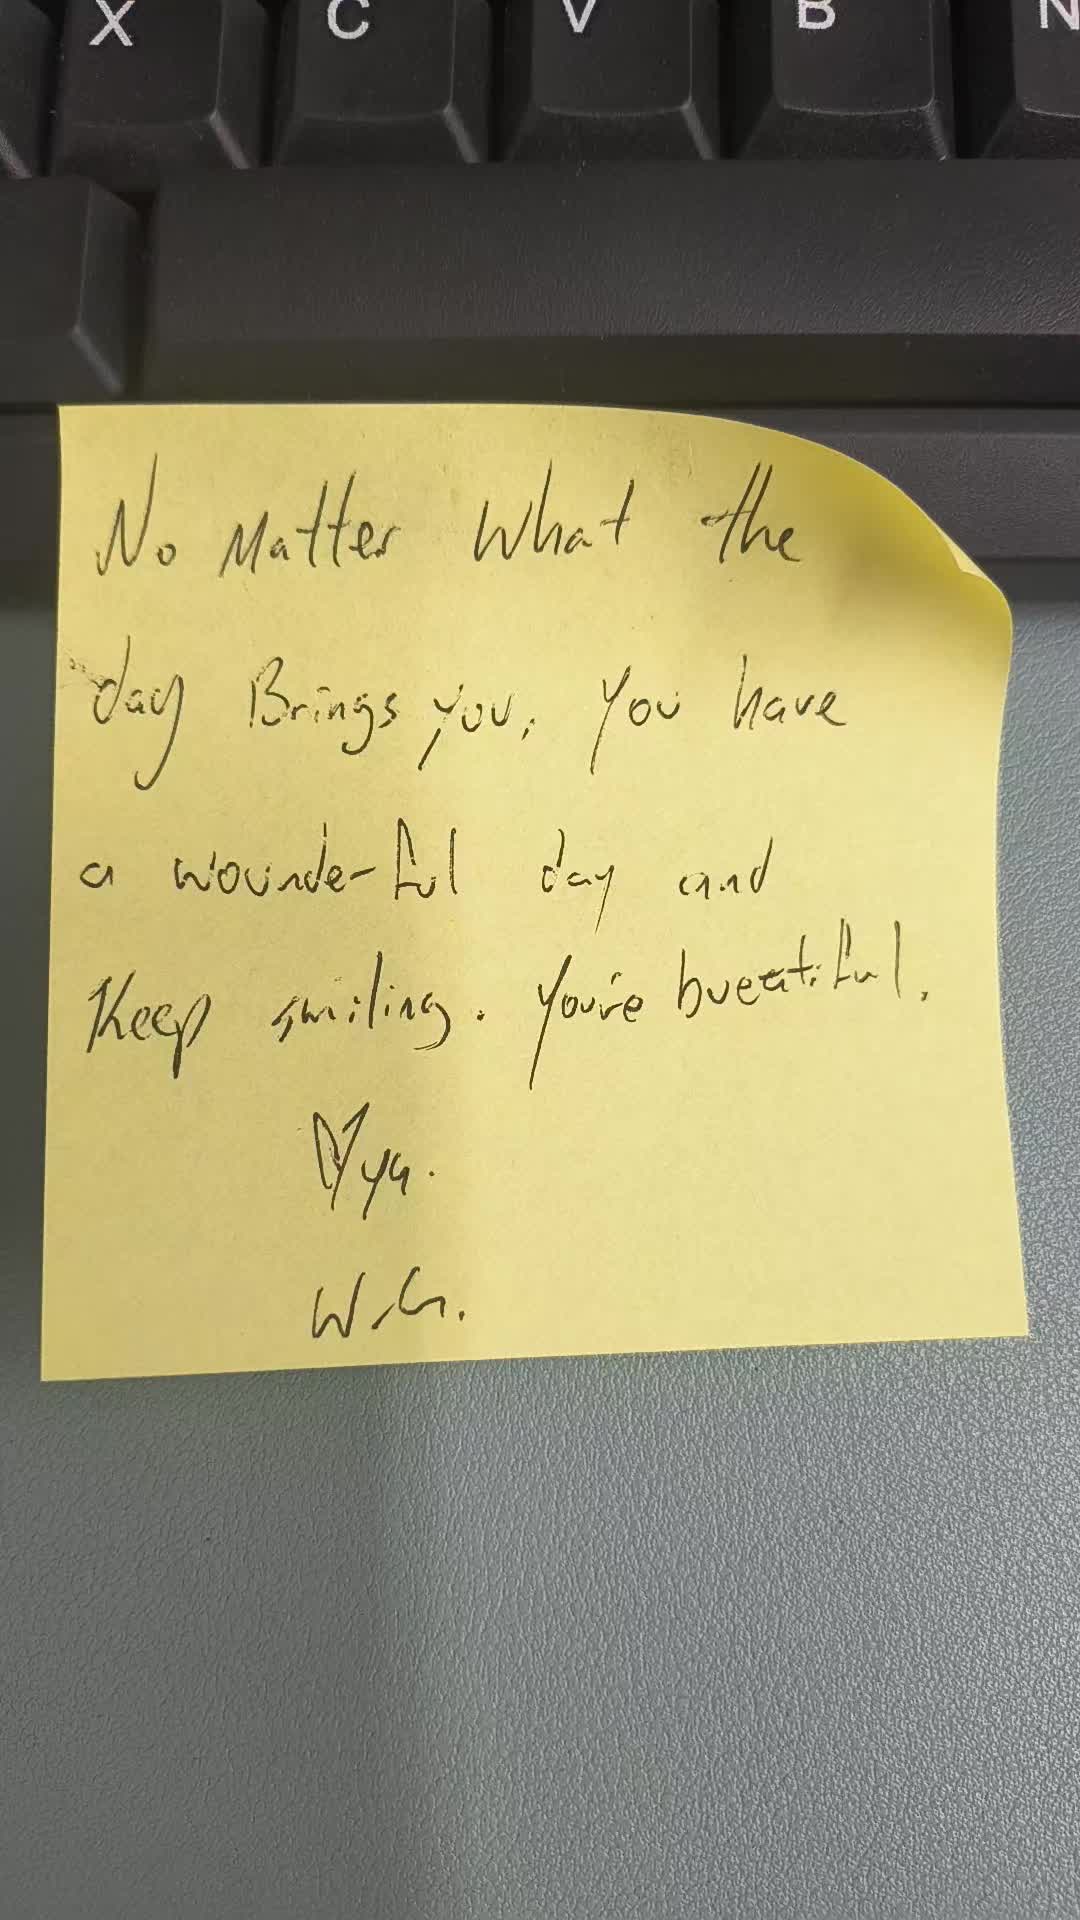 X C V B N
No Matter What the
day Brings you, You have
a wounderful day and
Keep smiling. You're bueatiful.
♡ya.
W.G.